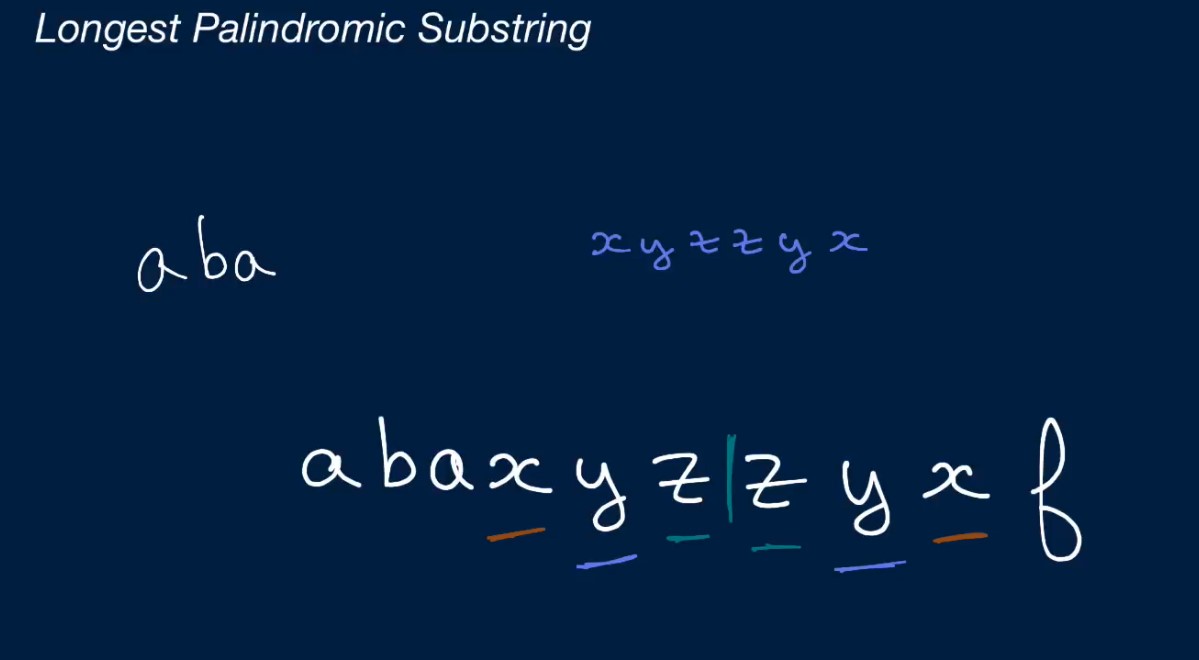 Longest Palindromic Substring
aba
xyzzyx
abaxyz|zyxf